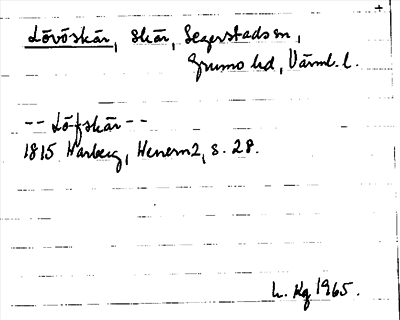 Lövöskär, skär, Segerstads sn,
Grums hd, Värml. l.
-- Löfskär --
1815 Warberg, Wenern 2, s. 28.
L. Kg 1965.